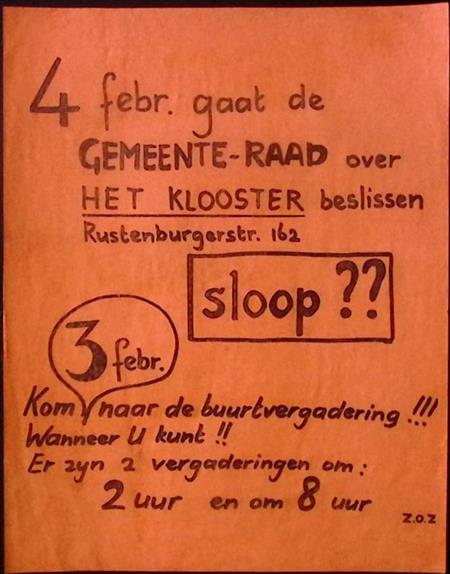 4 febr. gaat de
GEMEENTE-RAAD over
HET KLOOSTER beslissen
Rustenburgerstr. 162
sloop ??
3 febr.
Kom naar de buurtvergadering !!!
Wanneer U kunt !!
Er zyn 2 vergaderingen om:
2 uur en om 8 uur
Z.O.Z